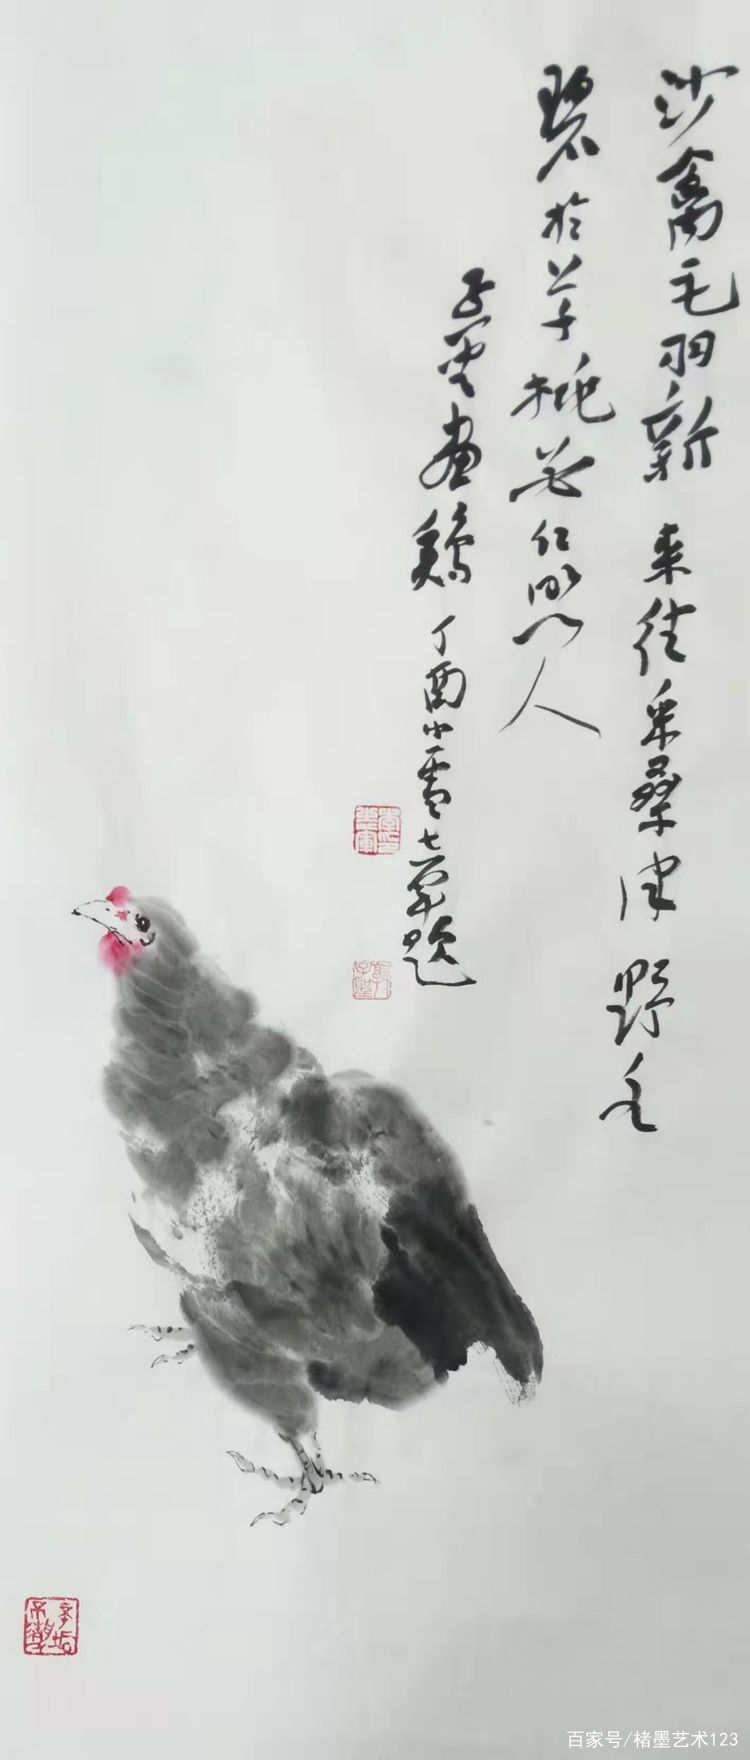 沙禽毛羽新 来往采桑津 野水
碧於草桃花红照人
画鸡 丁酉小雪 题
百家号/楮墨艺术123